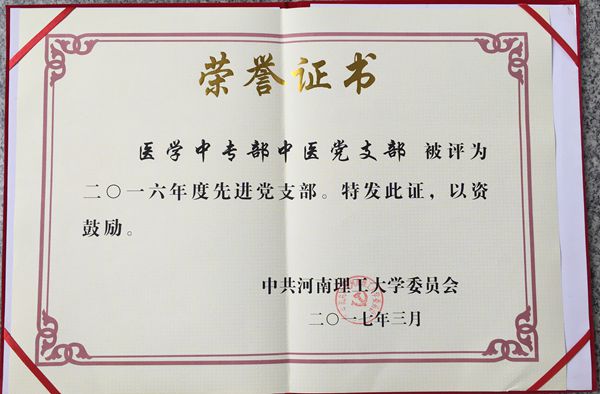 荣誉证书
医学中专部中医党支部 被评为
二〇一六年度先进党支部。特发此证，以资
鼓励。
中共河南理工大学委员会
二〇一七年三月